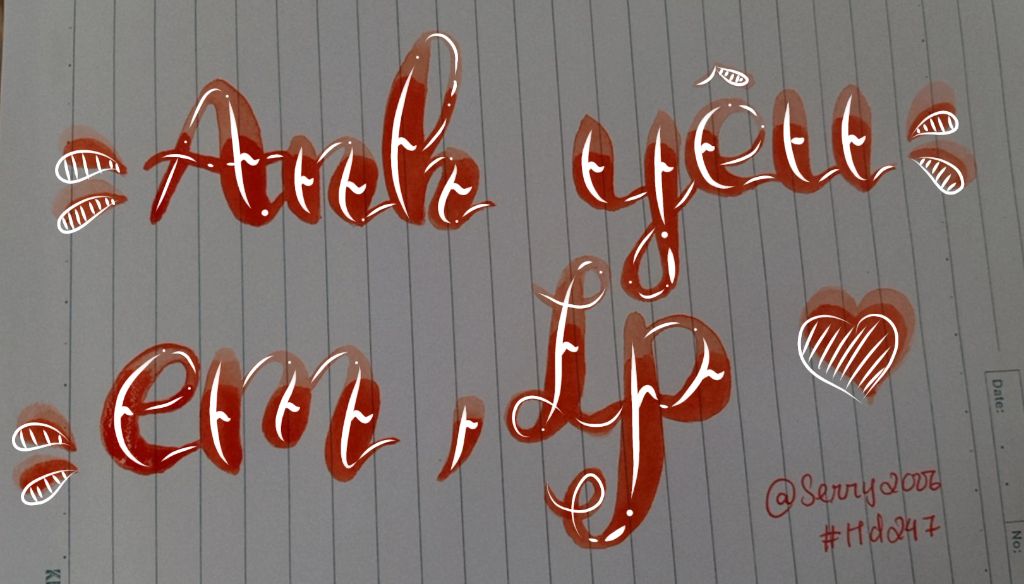 Anh yêu
em, Lp
@Serry2006
#Hd247
Date:
No: